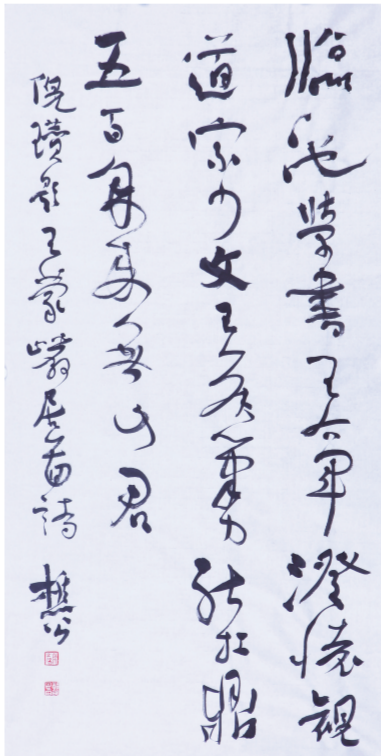 臨池學書王右軍澄懷觀
道宗少文王侯筆力能扛鼎
五百年來無此君
倪瓚題王蒙巖居圖詩 樵公